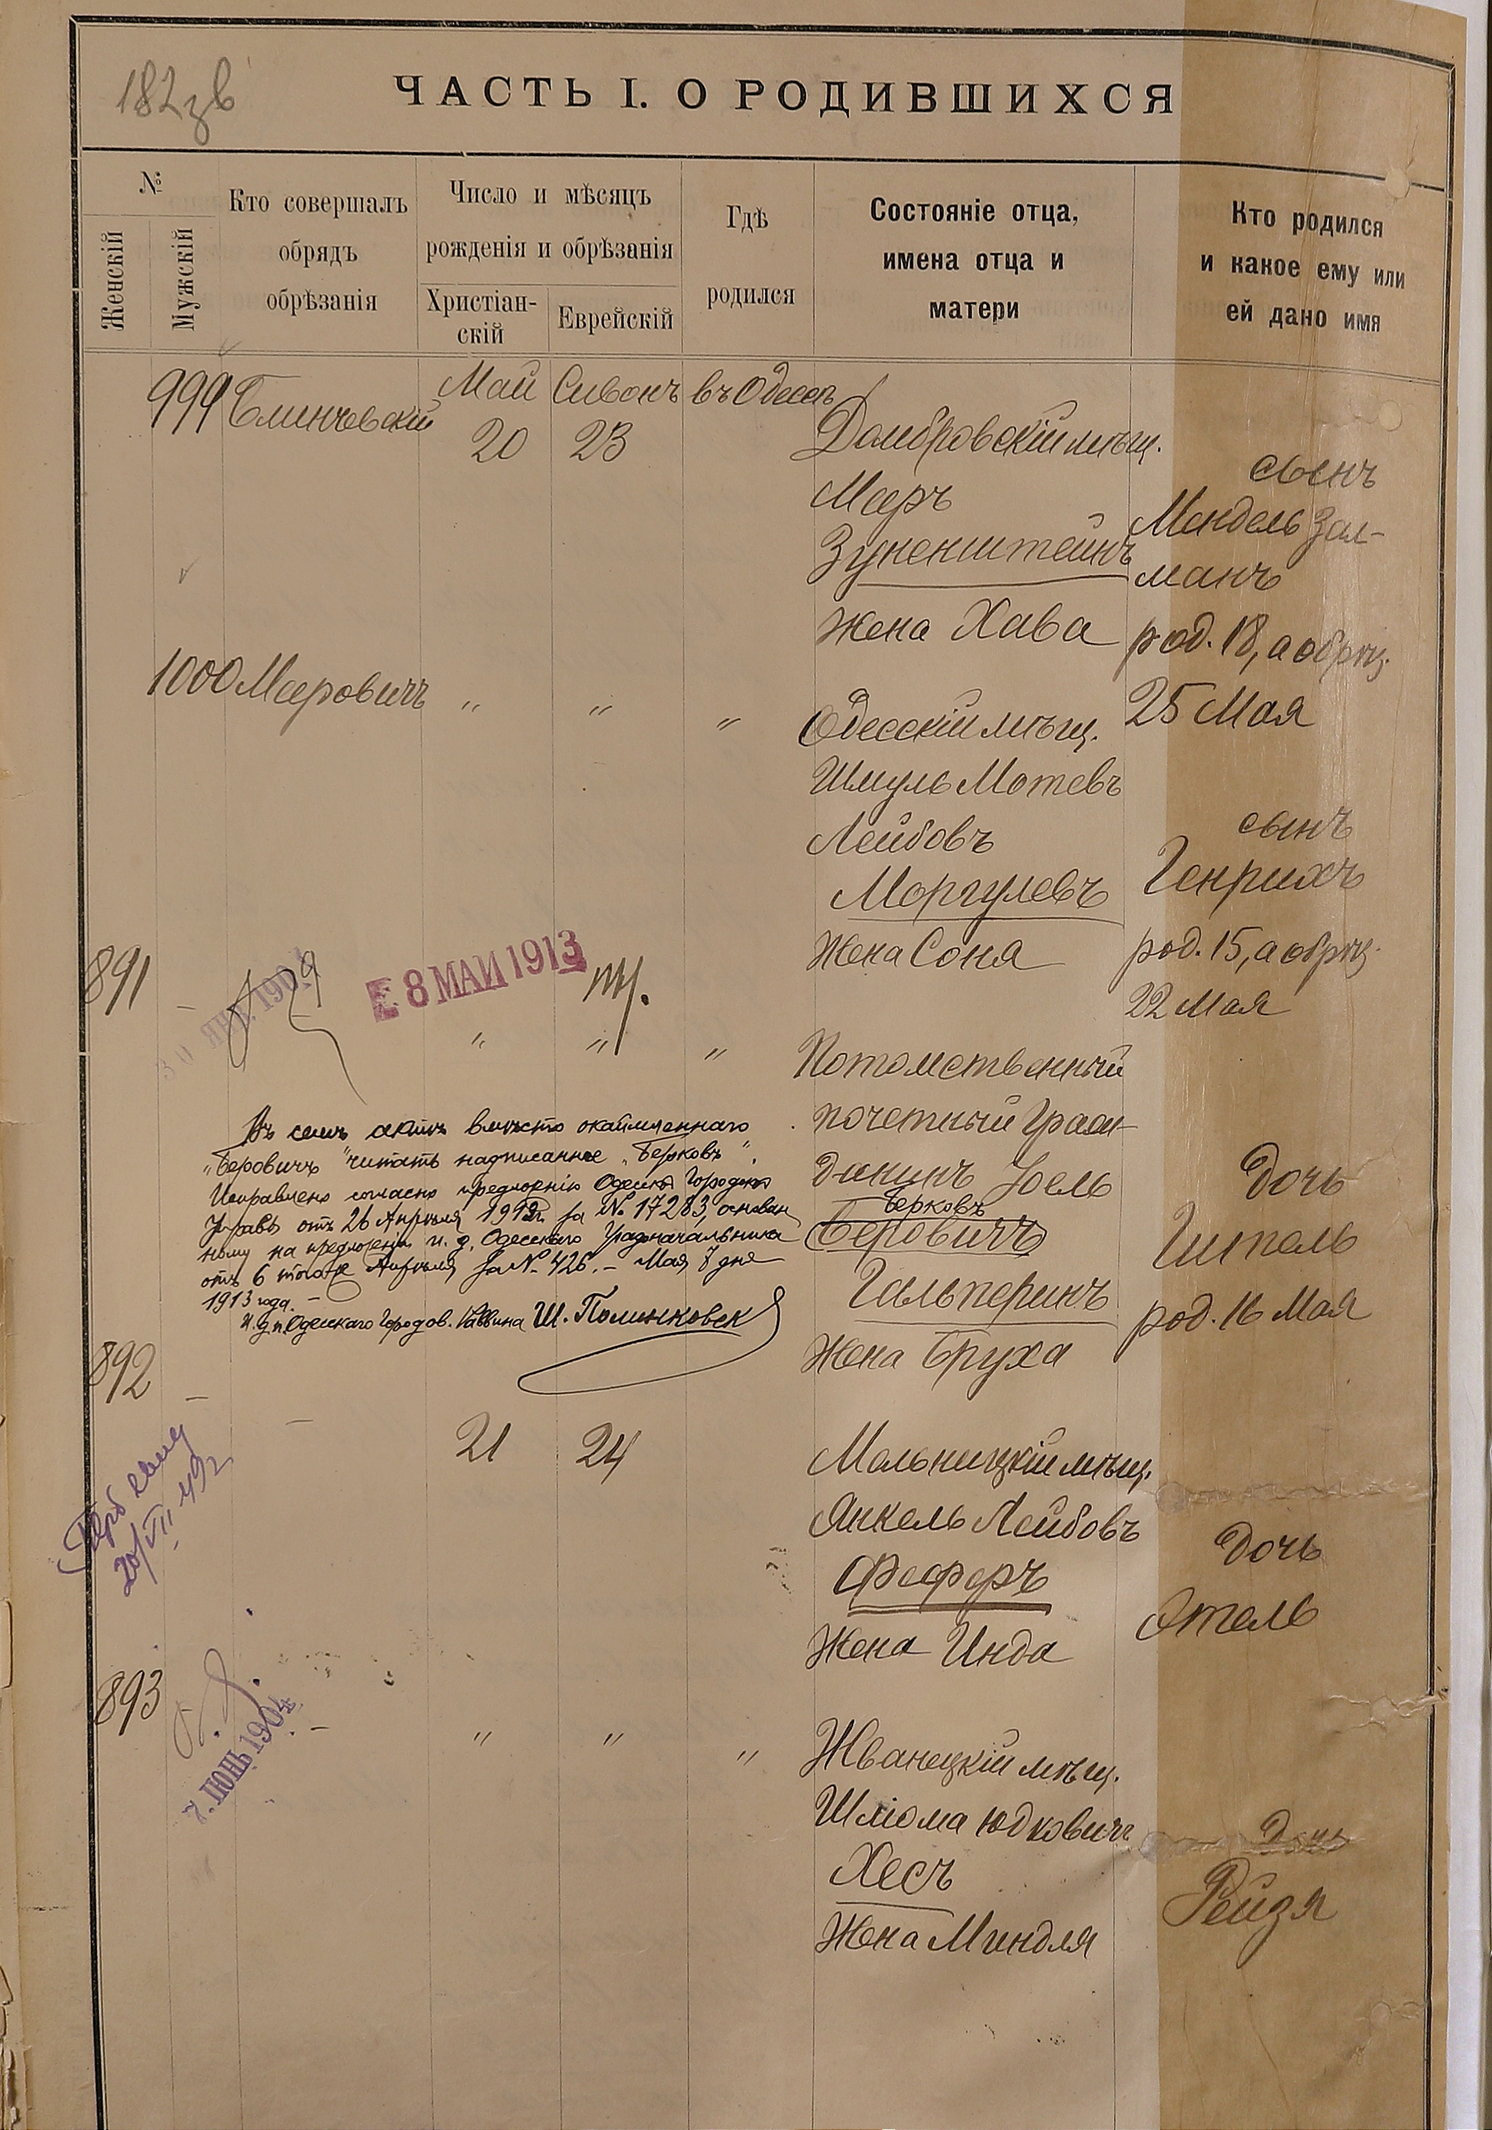 182 зв
ЧАСТЬ I. О РОДИВШИХСЯ
№
Женскій
Мужскій
Кто совершалъ
обрядъ
обрѣзанія
Число и мѣсяцъ
рожденія и обрѣзанія
Христіан-
скій
Еврейскій
Гдѣ
родился
Состояніе отца,
имена отца и
матери
Кто родился
и какое ему или
ей дано имя
999 Блинчевскій Май Сивонъ въ Одессѣ
20 23
Домбровскій мѣщ.
Меръ
Зуненштейнъ
жена Хава
сынъ
Мендель Зал-
манъ
род. 18, а обрѣз.
25 Мая
1000 Мееровичъ " " "
Одесскій мѣщ.
Шмуль Мотевъ
Лейбовъ
Моргулевъ
жена Соня
сынъ
Генрихъ
род. 15, а обрѣз.
22 Мая
891 –
30 ЯНВ. 1904
Е 8 МАИ 1913
" " "
Потомственный
почетный Граж-
данинъ Іоель
Берковъ
Беровичъ
Гальперинъ
жена Бруха
дочь
Гитель
род. 16 Мая
Въ семъ актѣ вмѣсто окаймленнаго
„Беровичъ" читать надписанное „Берковъ".
Исправлено согласно предложенію Одесской Городской
Управы отъ 26 Апрѣля 1913 г. за № 17283, основан
ному на предложеніи и. д. Одесскаго Градоначальника
отъ 6 того же Апрѣля за № 426. – Мая 7 дня
1913 года. –
И. д. п. Одесскаго Городов. Раввина Ш. Полинковск
892 – –
21 24
Мельницкій мѣщ.
Янкель Лейбовъ
Феферъ
Жена Инда
дочь
Этель
20/VII
893 – " " "
7. ІЮНЬ 1904
Жванецкій мѣщ.
Шліома Юдковичъ
Хесъ
Жена Миндля
дочь
Рейзя